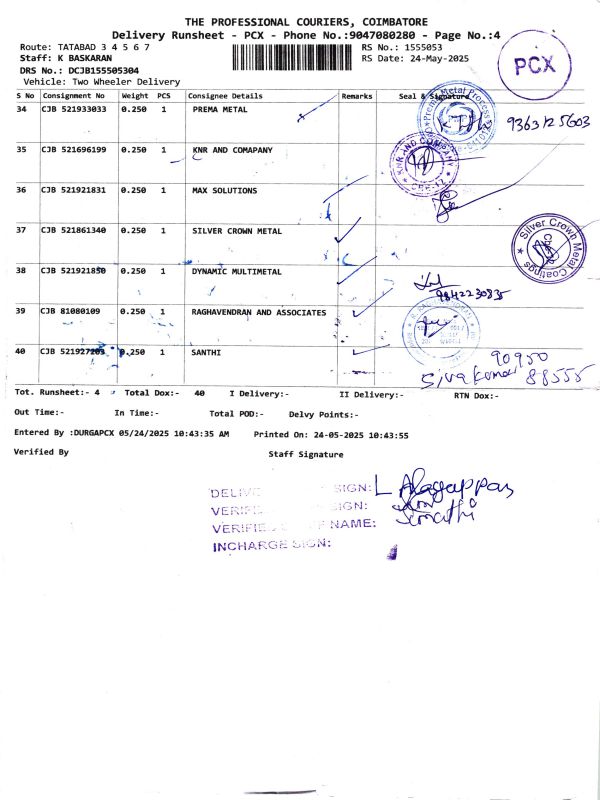 THE PROFESSIONAL COURIERS, COIMBATORE
Delivery Runsheet - PCX - Phone No.:9047080280 - Page No.:4
Route: TATABAD 3 4 5 6 7
RS No.: 1555053
Staff: K BASKARAN
RS Date: 24-May-2025
DRS No.: DCJB155505304
Vehicle: Two Wheeler Delivery
PCX
S No Consignment No Weight PCS Consignee Details Remarks Seal & Signature
34 CJB 521933033 0.250 1 PREMA METAL
Prema Metal Process
9363125603
35 CJB 521696199 0.250 1 KNR AND COMAPANY
KNR AND COMPANY
CBE-12
36 CJB 521921831 0.250 1 MAX SOLUTIONS
37 CJB 521861340 0.250 1 SILVER CROWN METAL
Silver Crown Metal Coatings
38 CJB 521921850 0.250 1 DYNAMIC MULTIMETAL
9842230835
39 CJB 81080109 0.250 1 RAGHAVENDRAN AND ASSOCIATES
40 CJB 521927203 0.250 1 SANTHI
90950
Sivakumar 88555
Tot. Runsheet:- 4 Total Dox:- 40 I Delivery:- II Delivery:- RTN Dox:-
Out Time:- In Time:- Total POD:- Delvy Points:-
Entered By :DURGAPCX 05/24/2025 10:43:35 AM Printed On: 24-05-2025 10:43:55
Verified By Staff Signature
DELIVE SIGN: L Alagappan
VERIFI SIGN:
VERIFIE NAME: Sumathi
INCHARGE SIGN: